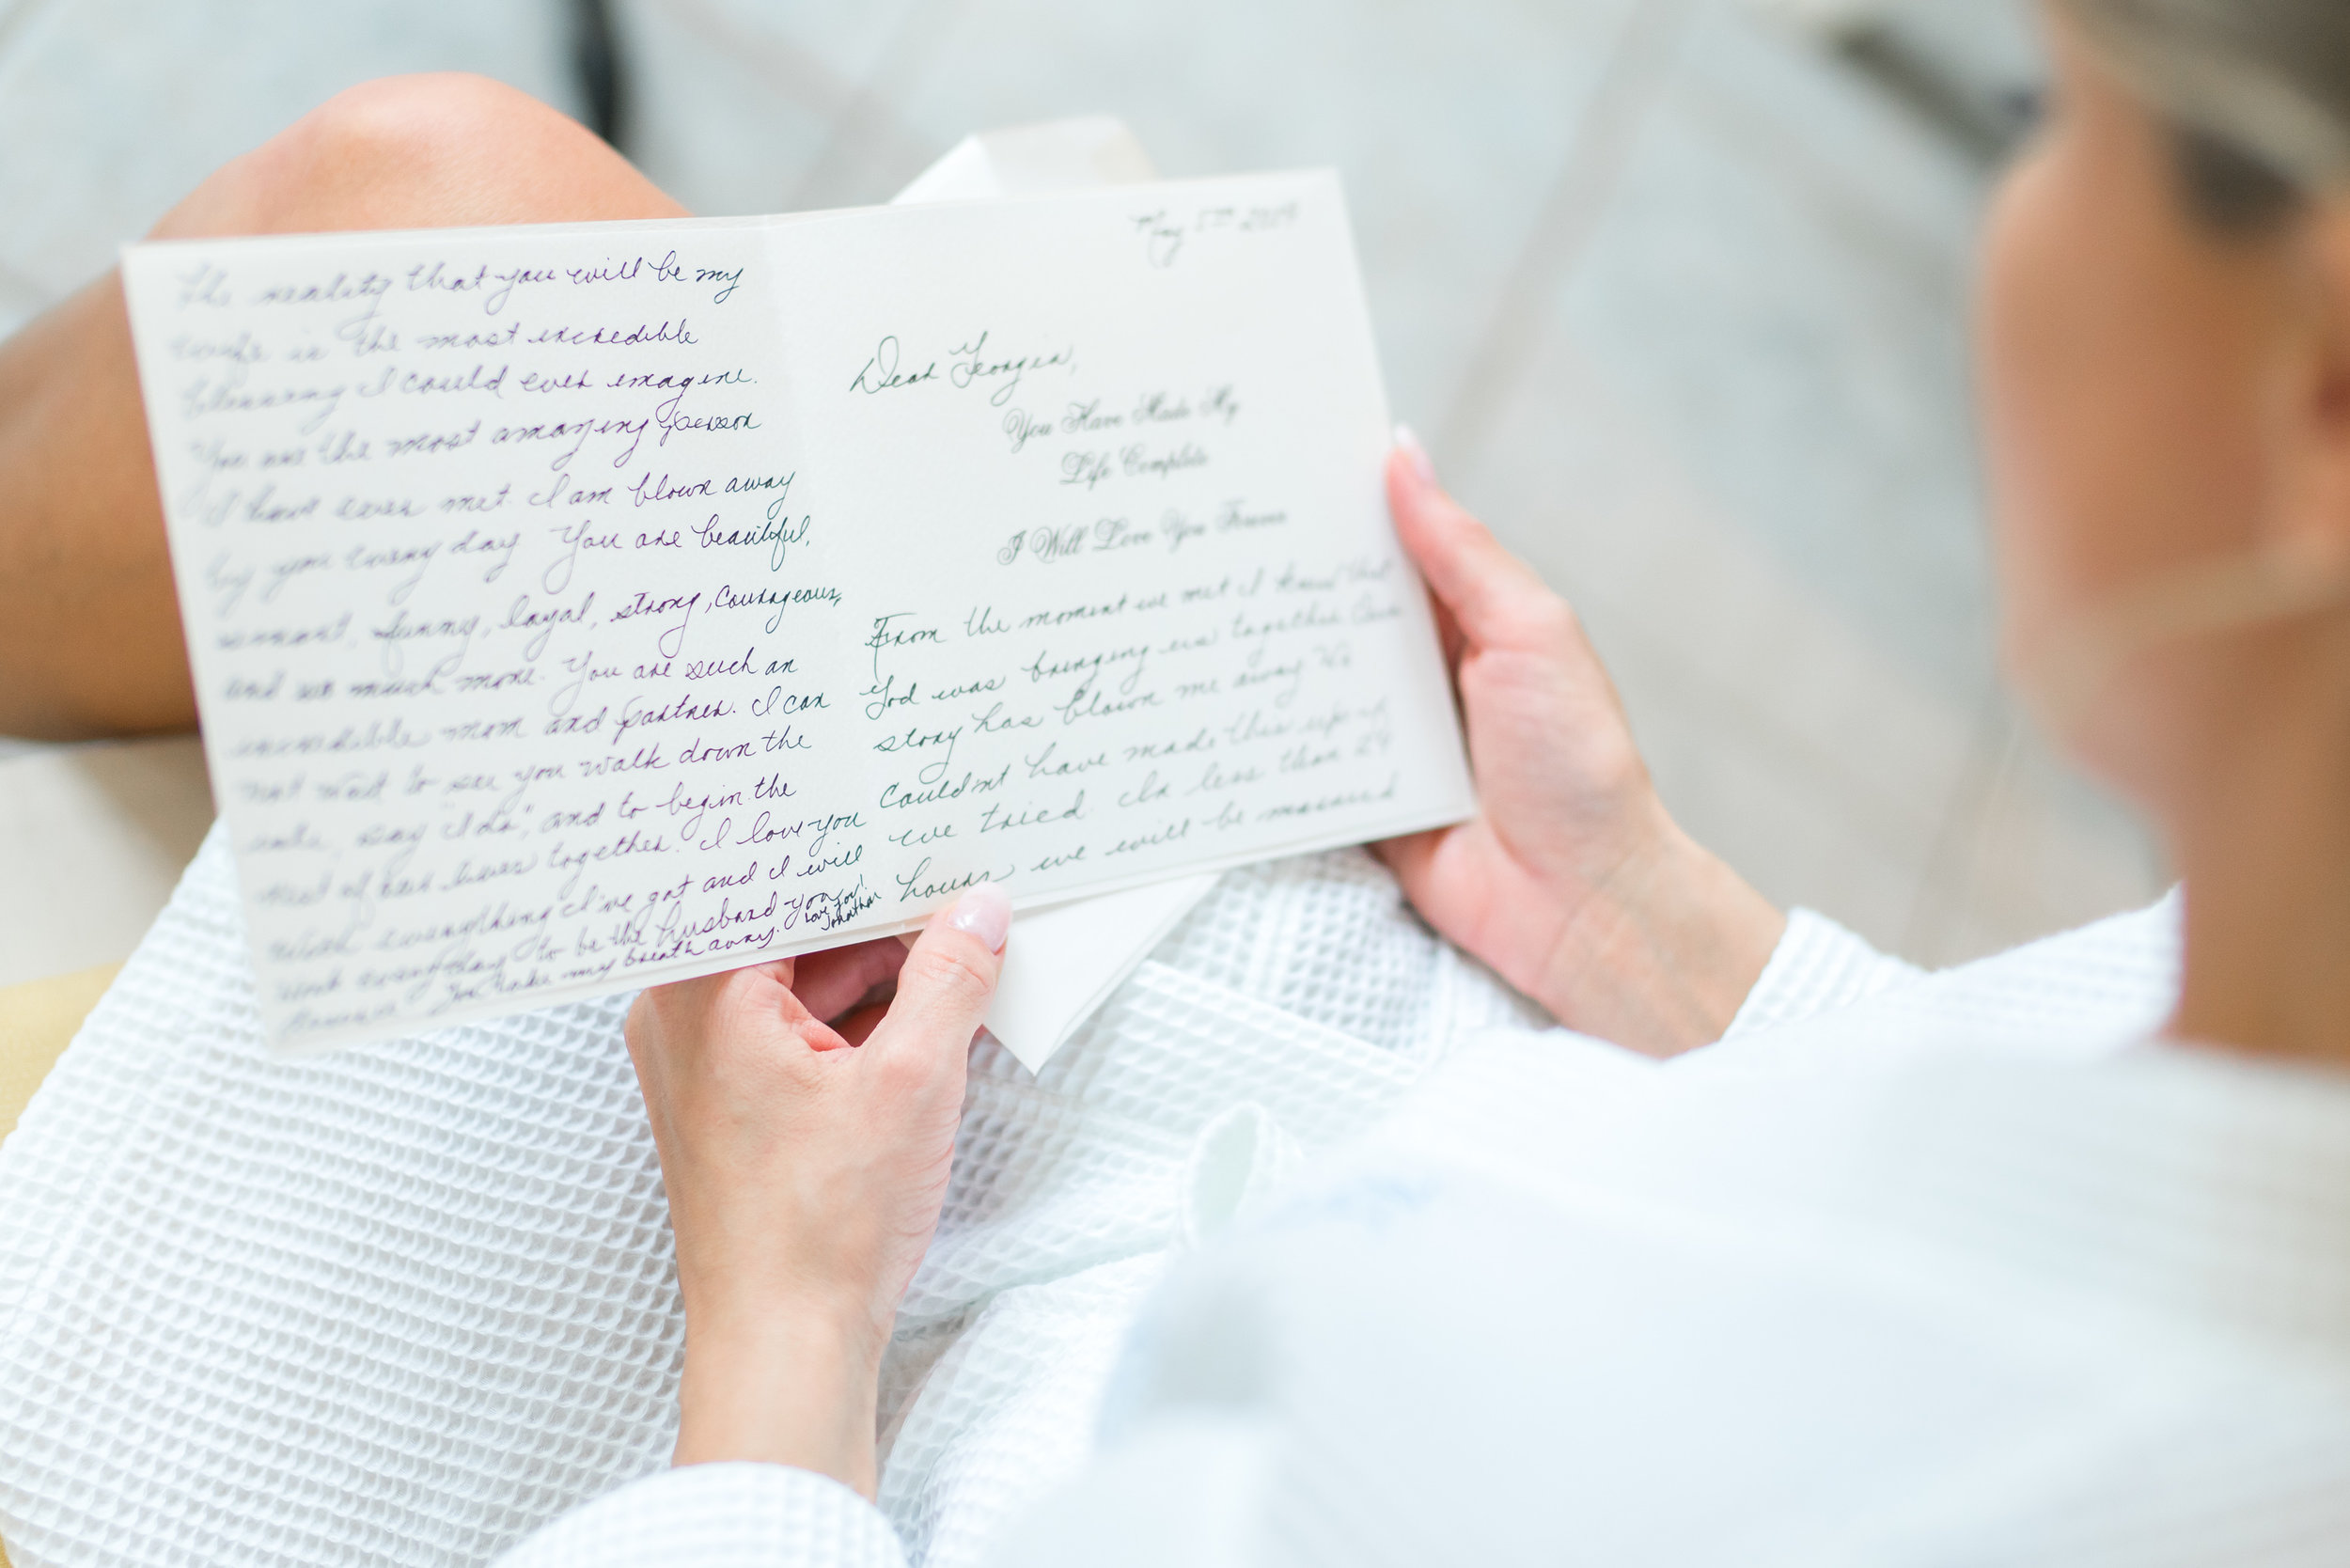 The reality that you will be my
wife is the most incredible
blessing I could ever imagine.
You are the most amazing person
I have ever met. I am blown away
by you every day You are beautiful,
smart, funny, loyal, strong, courageous,
and so much more. You are such an
incredible mom and partner. I can
not wait to see you walk down the
aisle, say "I do", and to begin the
rest of our lives together. I love you
with everything I've got and I will
work everyday to be the husband you
deserve. You take my breath away.
Love you!
Jonathan
May 2019
Dear
You Have Made My
Life Complete
I Will Love You Forever
From the moment we met I knew that
God was bringing us together. Our
story has blown me away. We
couldn't have made this up if
we tried. In less than 24
hours we will be married